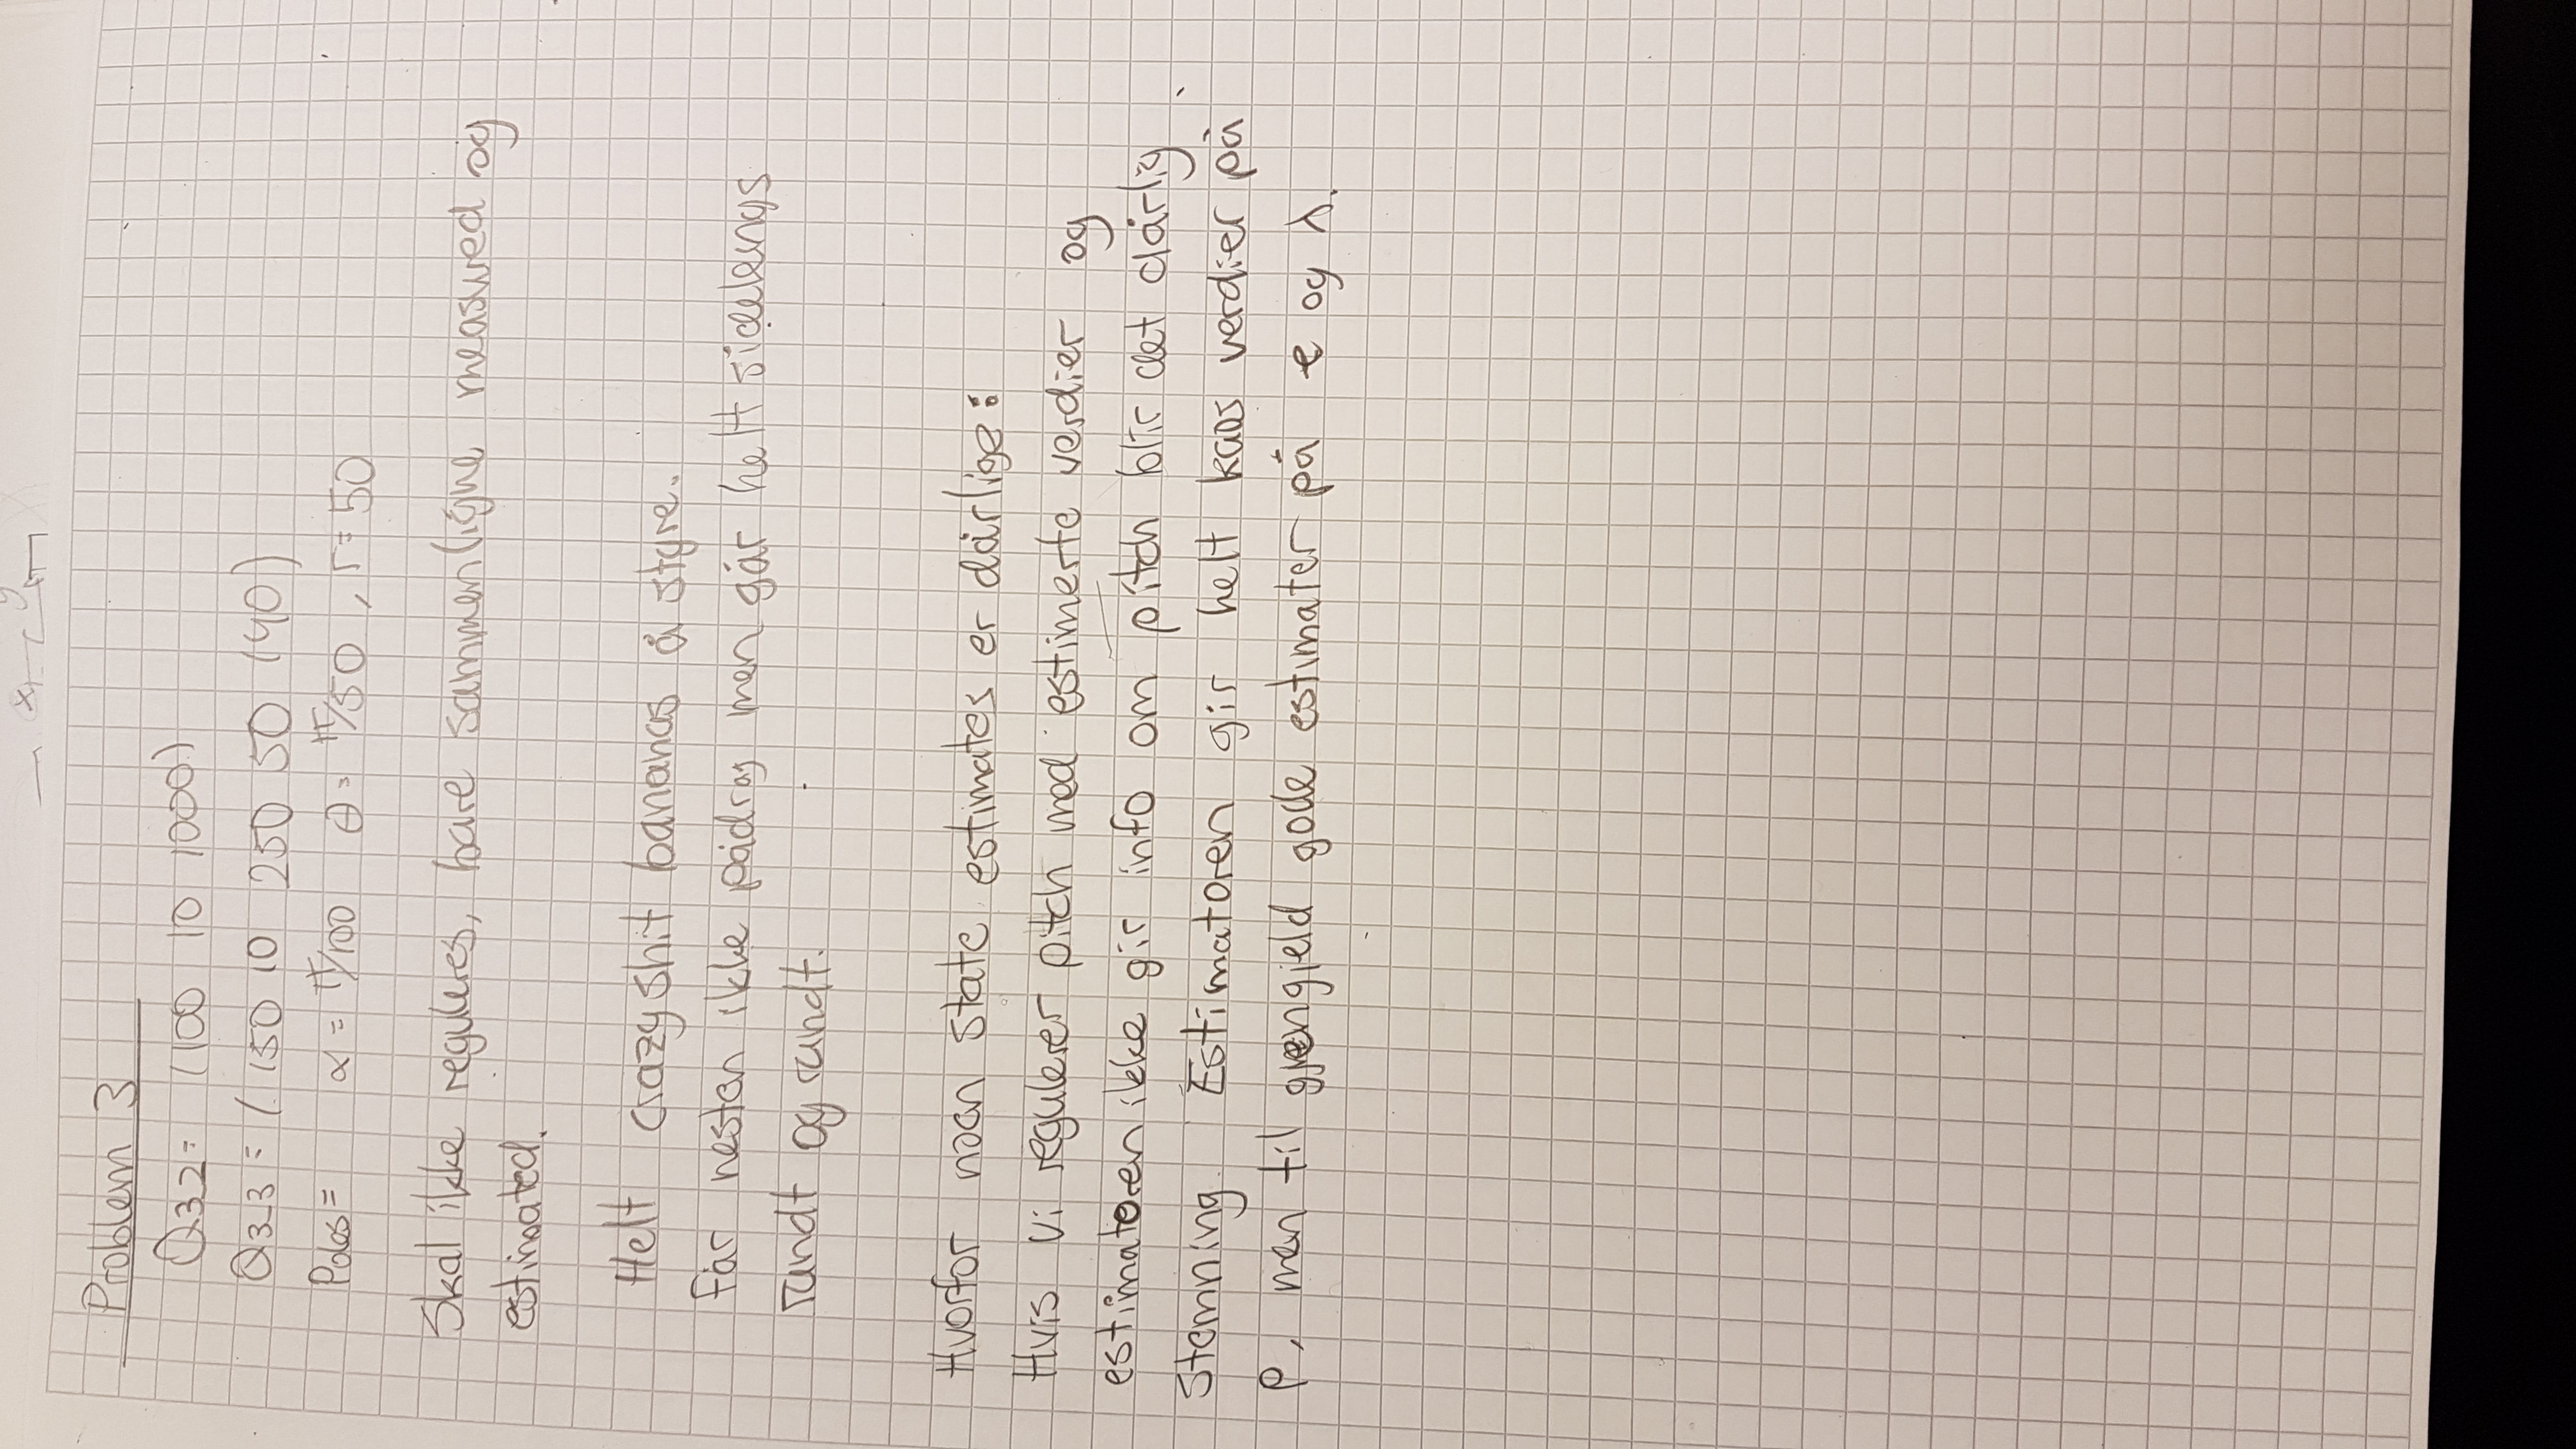 Problem 3
Q32= (100 10 1000)
Q3_3 = (150 10 250 50 140)
Poles = α = π/100 θ = π/50 , r = 50
Skal ikke reguleres, bare sammenligne measured og
estimated.
Helt crazy shit bananas å styre.
Får nesten ikke pådrag men går helt sidelengs
rundt og rundt.
Hvorfor noen state estimates er dårlige:
Hvis vi regulerer pitch med estimerte verdier og
estimatoren ikke gir info om pitch blir det dårlig
stemning. Estimatoren gir helt kaos verdier på
p, men til gjengjeld gode estimater på e og λ.